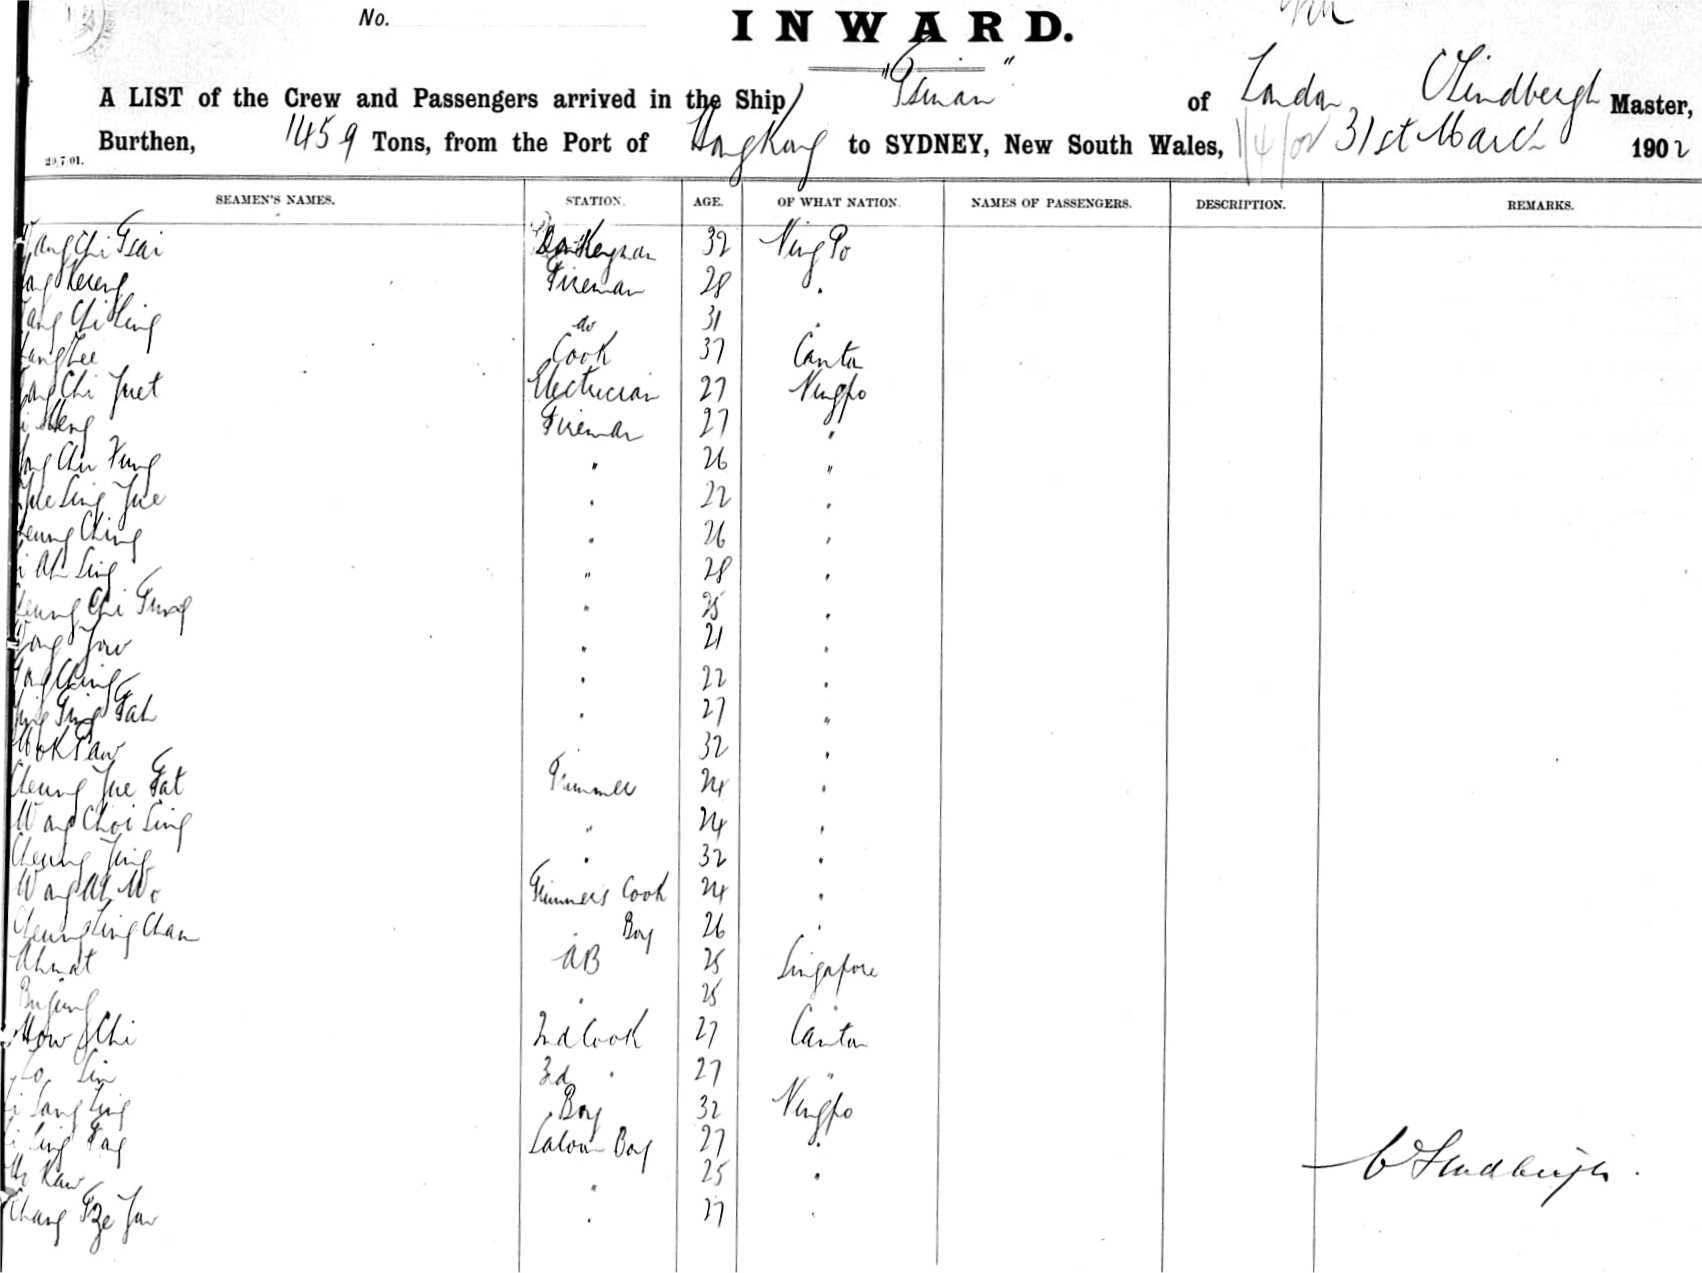 No.
INWARD.
A LIST of the Crew and Passengers arrived in the Ship "Tsinan" of London, C Lindbergh Master,
Burthen, 1459 Tons, from the Port of Hong Kong to SYDNEY, New South Wales, 31st March 1902
20.7.01.
SEAMEN'S NAMES. STATION. AGE. OF WHAT NATION. NAMES OF PASSENGERS. DESCRIPTION. REMARKS.
Chi Tsai Donkeyman 32 Ning Po
Fireman 28 "
Chi Ling do 31 "
Cook 37 Canton
Chi Juet Electrician 27 Ningpo
Fireman 27 "
Fung " 26 "
Ling Jue " 22 "
Ching " 26 "
Ah Sing " 28 "
Chi Tung " 25 "
" 21 "
Ching " 22 "
Fah " 27 "
" 32 "
Cheung Jue Fat Trimmer 24 "
Wong Choi Sing " 24 "
Cheung Jing " 32 "
Wong Ah Wo Trimmers Cook 24 "
Cheung Ling Chan " Boy 26 "
Ahmat AB 25 Singapore
Bujung " 25
How Chi 2nd Cook 27 Canton
Lin 3rd " 27 "
Ling Boy 32 Ningpo
Saloon Boy 27 "
Kaw " 25 "
C Lindbergh.
Chang Tze Jow " 27 "